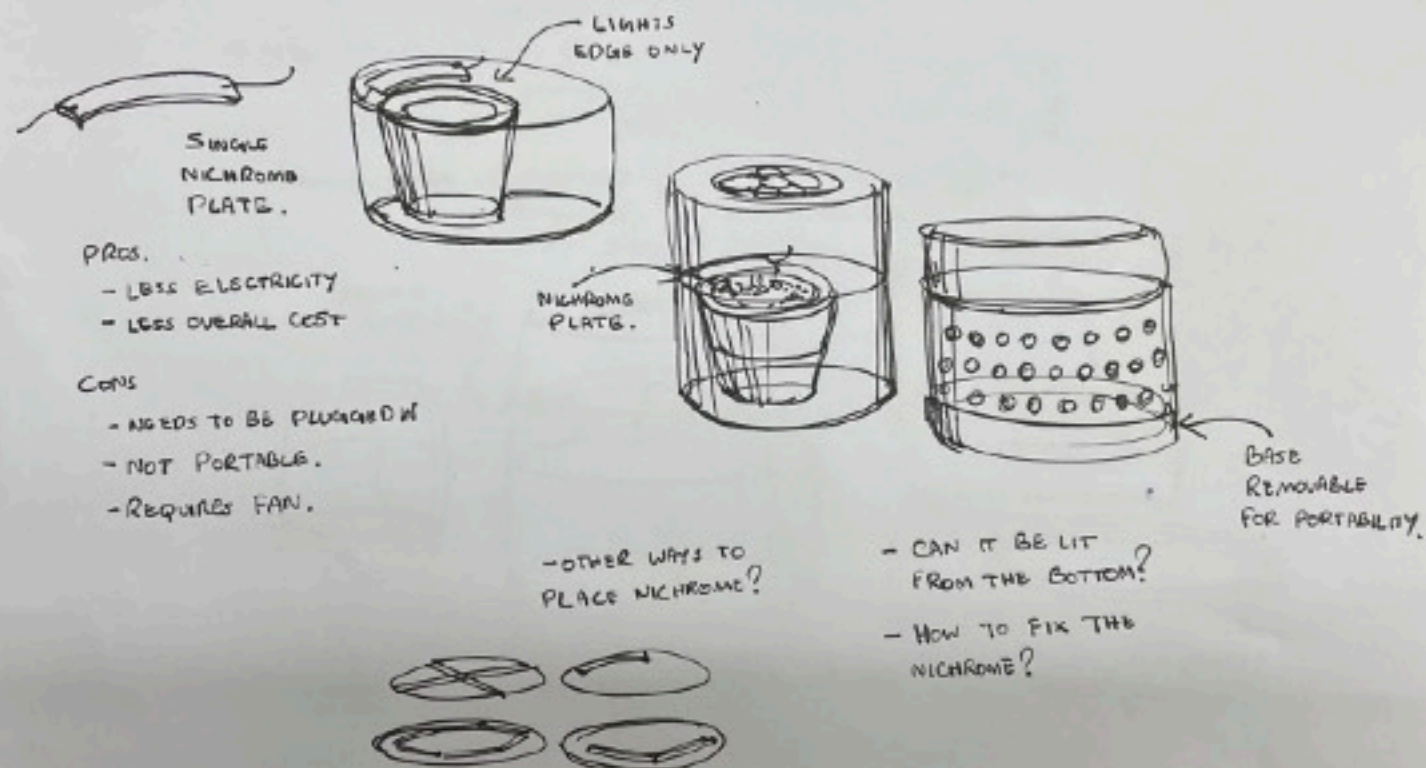 LIGHTS
EDGE ONLY
SINGLE
NICHROME
PLATE.
PROS.
- LESS ELECTRICITY
- LESS OVERALL COST
CONS
- NEEDS TO BE PLUGGED IN
- NOT PORTABLE.
- REQUIRES FAN.
NICHROME
PLATE.
BASE
REMOVABLE
FOR PORTABILITY.
- OTHER WAYS TO
PLACE NICHROME?
- CAN IT BE LIT
FROM THE BOTTOM?
- HOW TO FIX THE
NICHROME?